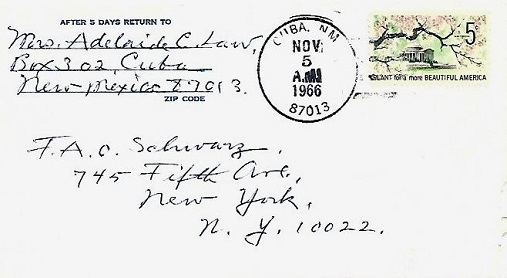 AFTER 5 DAYS RETURN TO
Mrs. Adelaide C. Law,
Box 302, Cuba
New Mexico 87013.
ZIP CODE
CUBA, NM
NOV
5
A.M
1966
87013
5c
PLANT for a more BEAUTIFUL AMERICA
F.A.O. Schwarz,
745 Fifth Ave.,
New York,
N. Y. 10022.